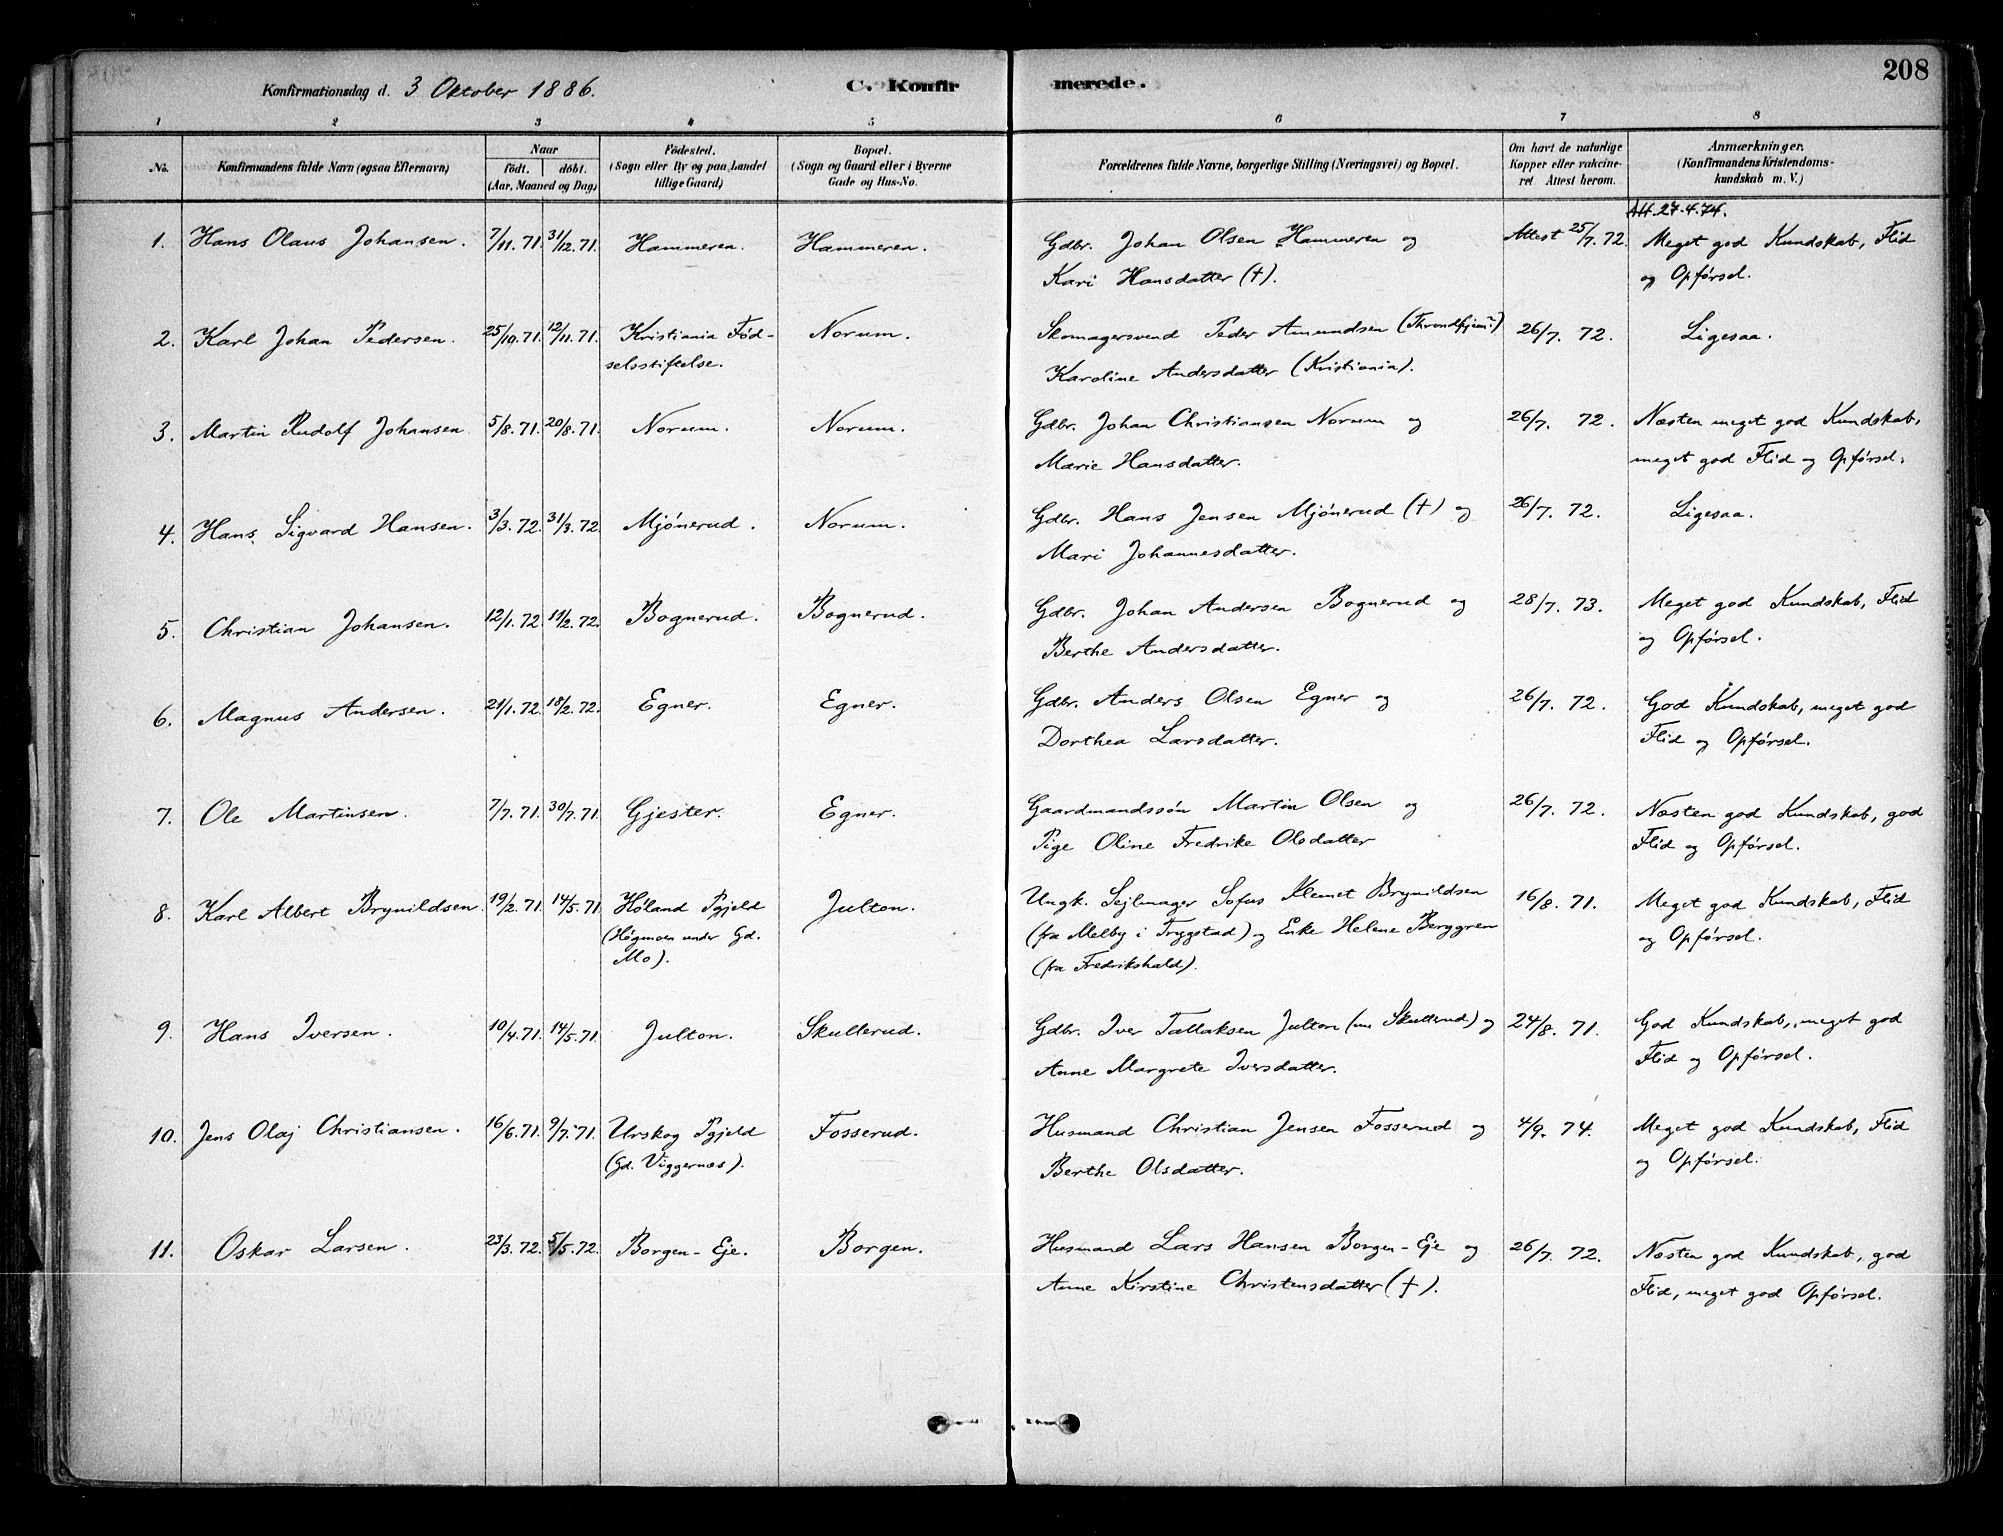 208
Konfirmationsdag d. 3 Oktober 1886. C. Konfir merede.
1 2 3 4 5 6 7 8
No. Konfirmandens fulde Navn (ogsaa Efternavn) Naar födt. döbt. (Aar, Maaned og Dag) Födested. (Sogn eller By og paa Landet tillige Gaard) Bopæl. (Sogn og Gaard eller i Byerne Gade og Hus-No. Forældrenes fulde Navne, borgerlige Stilling (Næringsvei) og Bopæl. Om havt de naturlige Kopper eller vakcineret Attest herom. Anmærkninger. (Konfirmandens Kristendomskundskab m. V.)
Att. 27.4.74.
1. Hans Olaus Johansen. 7/11.71. 31/12.71. Hammeren. Hammeren. Gdbr. Johan Olsen Hammeren og Attest 25/7.72. Meget god Kundskab, Flid
Kari Hansdatter (†). og Opførsel.
2. Karl Johan Pedersen. 25/10.71. 12/11.71. Kristiania Fød- Norum. Skomagersvend Peder Amundsen (Throndhjem) 26/7. 72. Ligesaa.
selsstiftelse. Karoline Andersdatter (Kristiania).
3. Martin Rudolf Johansen 5/8.71. 20/8.71. Norum. Norum. Gdbr. Johan Christiansen Norum og 26/7. 72. Næsten meget god Kundskab,
Marie Hansdatter. meget god Flid og Opførsel.
4. Hans Sigvard Hansen. 3/3.72. 31/3.72. Mjønerud. Norum. Gdbr. Hans Jensen Mjønerud (†) og 26/7. 72. Ligesaa.
Mari Johannesdatter.
5. Christian Johansen. 12/1.72. 11/2.72. Bognerud. Bognerud. Gdbr. Johan Andersen Bognerud og 28/7. 73. Meget god Kundskab, Flid
Berthe Andersdatter. og Opførsel.
6. Magnus Andersen. 21/1.72. 18/2.72. Egner. Egner. Gdbr. Anders Olsen Egner og 26/7. 72. God Kundskab, meget god
Dorthea Larsdatter. Flid og Opførsel.
7. Ole Martinsen. 7/7.71. 30/7.71. Gjester. Egner. Gaardmandssøn Martin Olsen og 26/7. 72. Næsten god Kundskab, god
Pige Oline Fredrike Olsdatter Flid og Opførsel.
8. Karl Albert Brynildsen. 19/2.71. 14/5.71. Høland Pgjeld Julton. Ungk. Sejlmager Sofus Klemet Brynildsen 16/8. 71. Meget god Kundskab, Flid
(Høgmoen under Gd. (fra Melby i Trygstad) og Enke Helene Berggren og Opførsel.
Mo). (fra Fredrikshald).
9. Hans Iversen. 10/4.71. 14/5.71. Julton. Skullerud. Gdbr. Iver Tallaksen Julton (nu Skullerud) og 24/8. 71. God Kundskab, meget god
Anne Margrete Iversdatter. Flid og Opførsel.
10. Jens Olaj Christiansen. 16/6.71. 9/7.71. Urskog Pgjeld Fosserud. Husmand Christian Jensen Fosserud og 4/9. 74. Meget god Kundskab, Flid
(Gd. Viggernæs). Berthe Olsdatter. og Opførsel.
11. Oskar Larsen. 23/3.72. 5/5.72. Borgen-Eje. Borgen. Husmand Lars Hansen Borgen-Eje og 26/7. 72. Næsten god Kundskab, god
Anne Kirstine Christensdatter (†). Flid, meget god Opførsel.